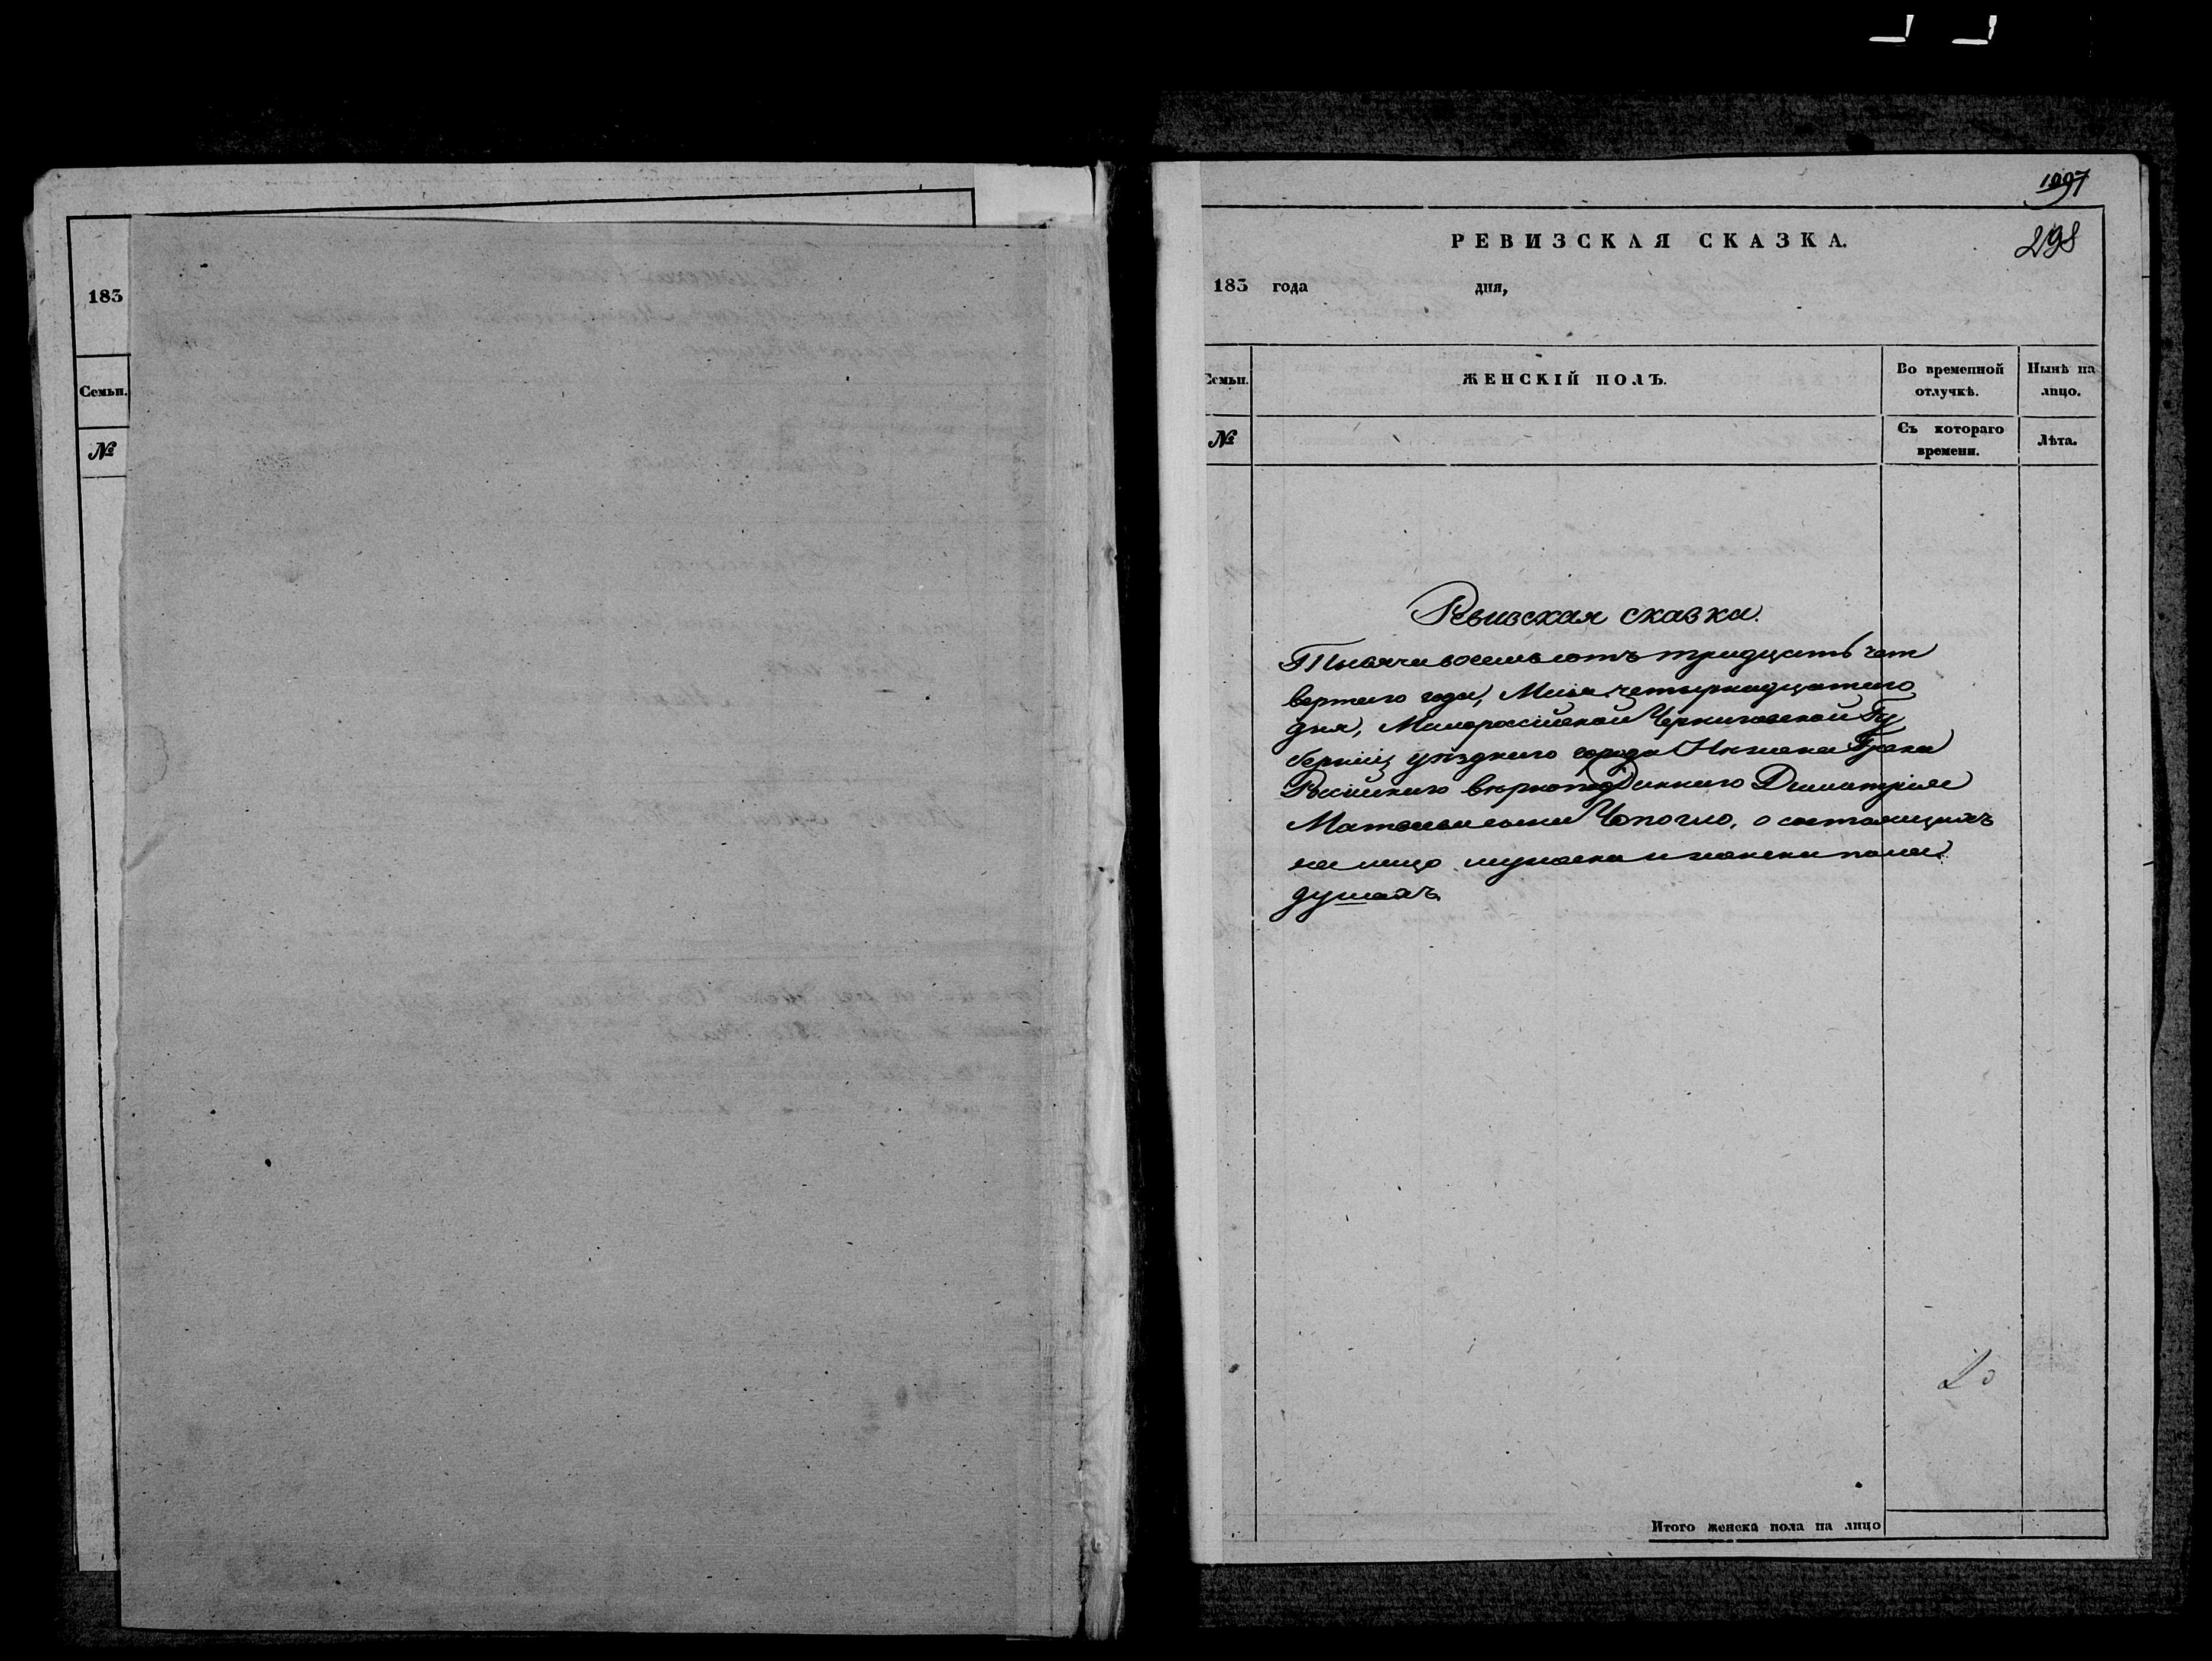 183
Семьи.
№
1097
298
РЕВИЗСКАЯ СКАЗКА.
183 года дня,
Семьи.
ЖЕНСКІЙ ПОЛЪ.
Во временной отлучкѣ.
Нынѣ на лицо.
№
Съ котораго времени.
Лѣта.
Ревизская сказка.
Тысяча восемьсотъ тридцать чет
вертаго года, Маія четырнадцатаго
дня, Малоросійской Черниговской Гу
берніи, уѣзднаго города Нѣжина Грека
Російскаго вѣрноподданнаго Димитрія
о состоящихъ
на лицо мужеска и женска пола
душахъ.
Итого женска пола на лицо